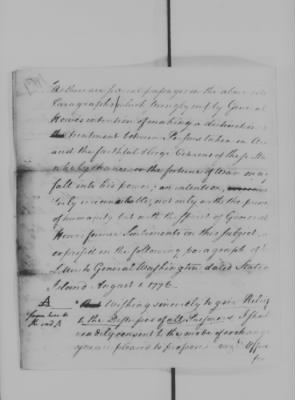 As there are several passages in the above
Paragraphs which strongly imply General
Howe's intention of making a distinction
treatment between Persons taken in
and the faithful & loyal Citizens of these
who by chance or the fortune of War may
fall into his power; an intention,
not only with the
of humanity but with the Spirit of General
Howe's former Sentiments on this Subject,
expressed in the following paragraph of
Letter to General Washington, dated Staten
Island August 1 1776
A
Wishing sincerely to give Relief
to the Distresses of all Prisoners I shall
readily consent to the mode of exchange
you are pleased to propose
for